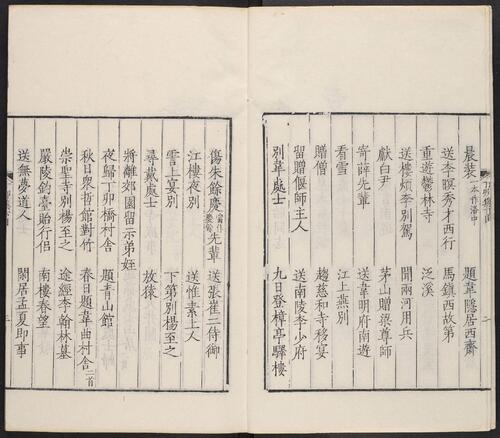 晨裝一本作潘中　題韋隱居西齋
送李暝秀才西行　馬鎮西故第
重遊鬱林寺　泛溪
送樓煩李別駕　聞兩河用兵
獻白尹　茅山贈梁尊師
寄薛先輩　送韋明府南遊
看雪　江上燕別
贈僧　趨慈和寺移宴
留贈偃師主人　送南陵李少府
別韋處士　九日登樟亭驛樓
傷朱餘慶當作慶餘先輩　送張崔二侍御
江樓夜別　送惟素上人
霅上宴別　下第別楊至之
尋戴處士　放猿
將離郊園留示弟姪
夜歸丁卯橋村舍　題青山館
秋日衆哲館對竹　春日題韋曲村舍二首
崇聖寺別楊至之　途經李翰林墓
嚴陵釣臺貽行侶　南樓春望
送無夢道人　閑居孟夏即事